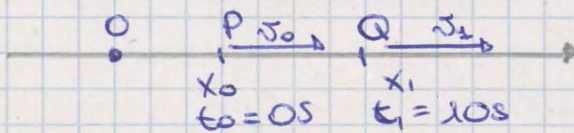 O P v₀ Q v₁
x₀ x₁
t₀ = 0s t₁ = 10s